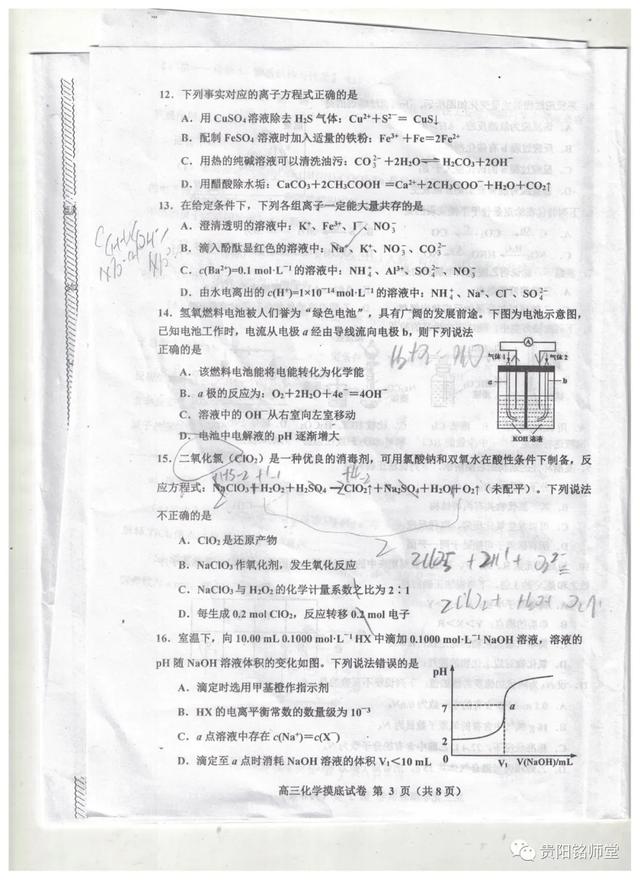 12．下列事实对应的离子方程式正确的是
A．用 CuSO₄ 溶液除去 H₂S 气体：Cu²⁺＋S²⁻＝ CuS↓
B．配制 FeSO₄ 溶液时加入适量的铁粉：Fe³⁺＋Fe＝2Fe²⁺
C．用热的纯碱溶液可以清洗油污：CO₃²⁻＋2H₂O⇌H₂CO₃＋2OH⁻
D．用醋酸除水垢：CaCO₃＋2CH₃COOH＝Ca²⁺＋2CH₃COO⁻＋H₂O＋CO₂↑
13．在给定条件下，下列各组离子一定能大量共存的是
A．澄清透明的溶液中：K⁺、Fe³⁺、I⁻、NO₃⁻
B．滴入酚酞显红色的溶液中：Na⁺、K⁺、NO₃⁻、CO₃²⁻
C．c(Ba²⁺)=0.1 mol·L⁻¹ 的溶液中：NH₄⁺、Al³⁺、SO₄²⁻、NO₃⁻
D．由水电离出的 c(H⁺)=1×10⁻¹⁴mol·L⁻¹ 的溶液中：NH₄⁺、Na⁺、Cl⁻、SO₄²⁻
14．氢氧燃料电池被人们誉为“绿色电池”，具有广阔的发展前途。下图为电池示意图，
已知电池工作时，电流从电极 a 经由导线流向电极 b，则下列说法
正确的是
A．该燃料电池能将电能转化为化学能
B．a 极的反应为：O₂＋2H₂O＋4e⁻＝4OH⁻
C．溶液中的 OH⁻从右室向左室移动
D．电池中电解液的 pH 逐渐增大
A
气体 1
气体 2
a
b
KOH 溶液
15．二氧化氯（ClO₂）是一种优良的消毒剂，可用氯酸钠和双氧水在酸性条件下制备，反
应方程式：NaClO₃＋H₂O₂＋H₂SO₄ → ClO₂↑＋Na₂SO₄＋H₂O＋O₂↑（未配平）。下列说法
不正确的是
A．ClO₂ 是还原产物
B．NaClO₃ 作氧化剂，发生氧化反应
C．NaClO₃ 与 H₂O₂ 的化学计量系数之比为 2∶1
D．每生成 0.2 mol ClO₂，反应转移 0.2 mol 电子
16．室温下，向 10.00 mL 0.1000 mol·L⁻¹ HX 中滴加 0.1000 mol·L⁻¹ NaOH 溶液，溶液的
pH 随 NaOH 溶液体积的变化如图，下列说法错误的是
A．滴定时选用甲基橙作指示剂
B．HX 的电离平衡常数的数量级为 10⁻³
C．a 点溶液中存在 c(Na⁺)＝c(X⁻)
D．滴定至 a 点时消耗 NaOH 溶液的体积 V₁＜10 mL
pH
7
a
2
0
V₁
V(NaOH)/mL
高三化学摸底试卷 第 3 页（共 8 页）
贵阳铭师堂